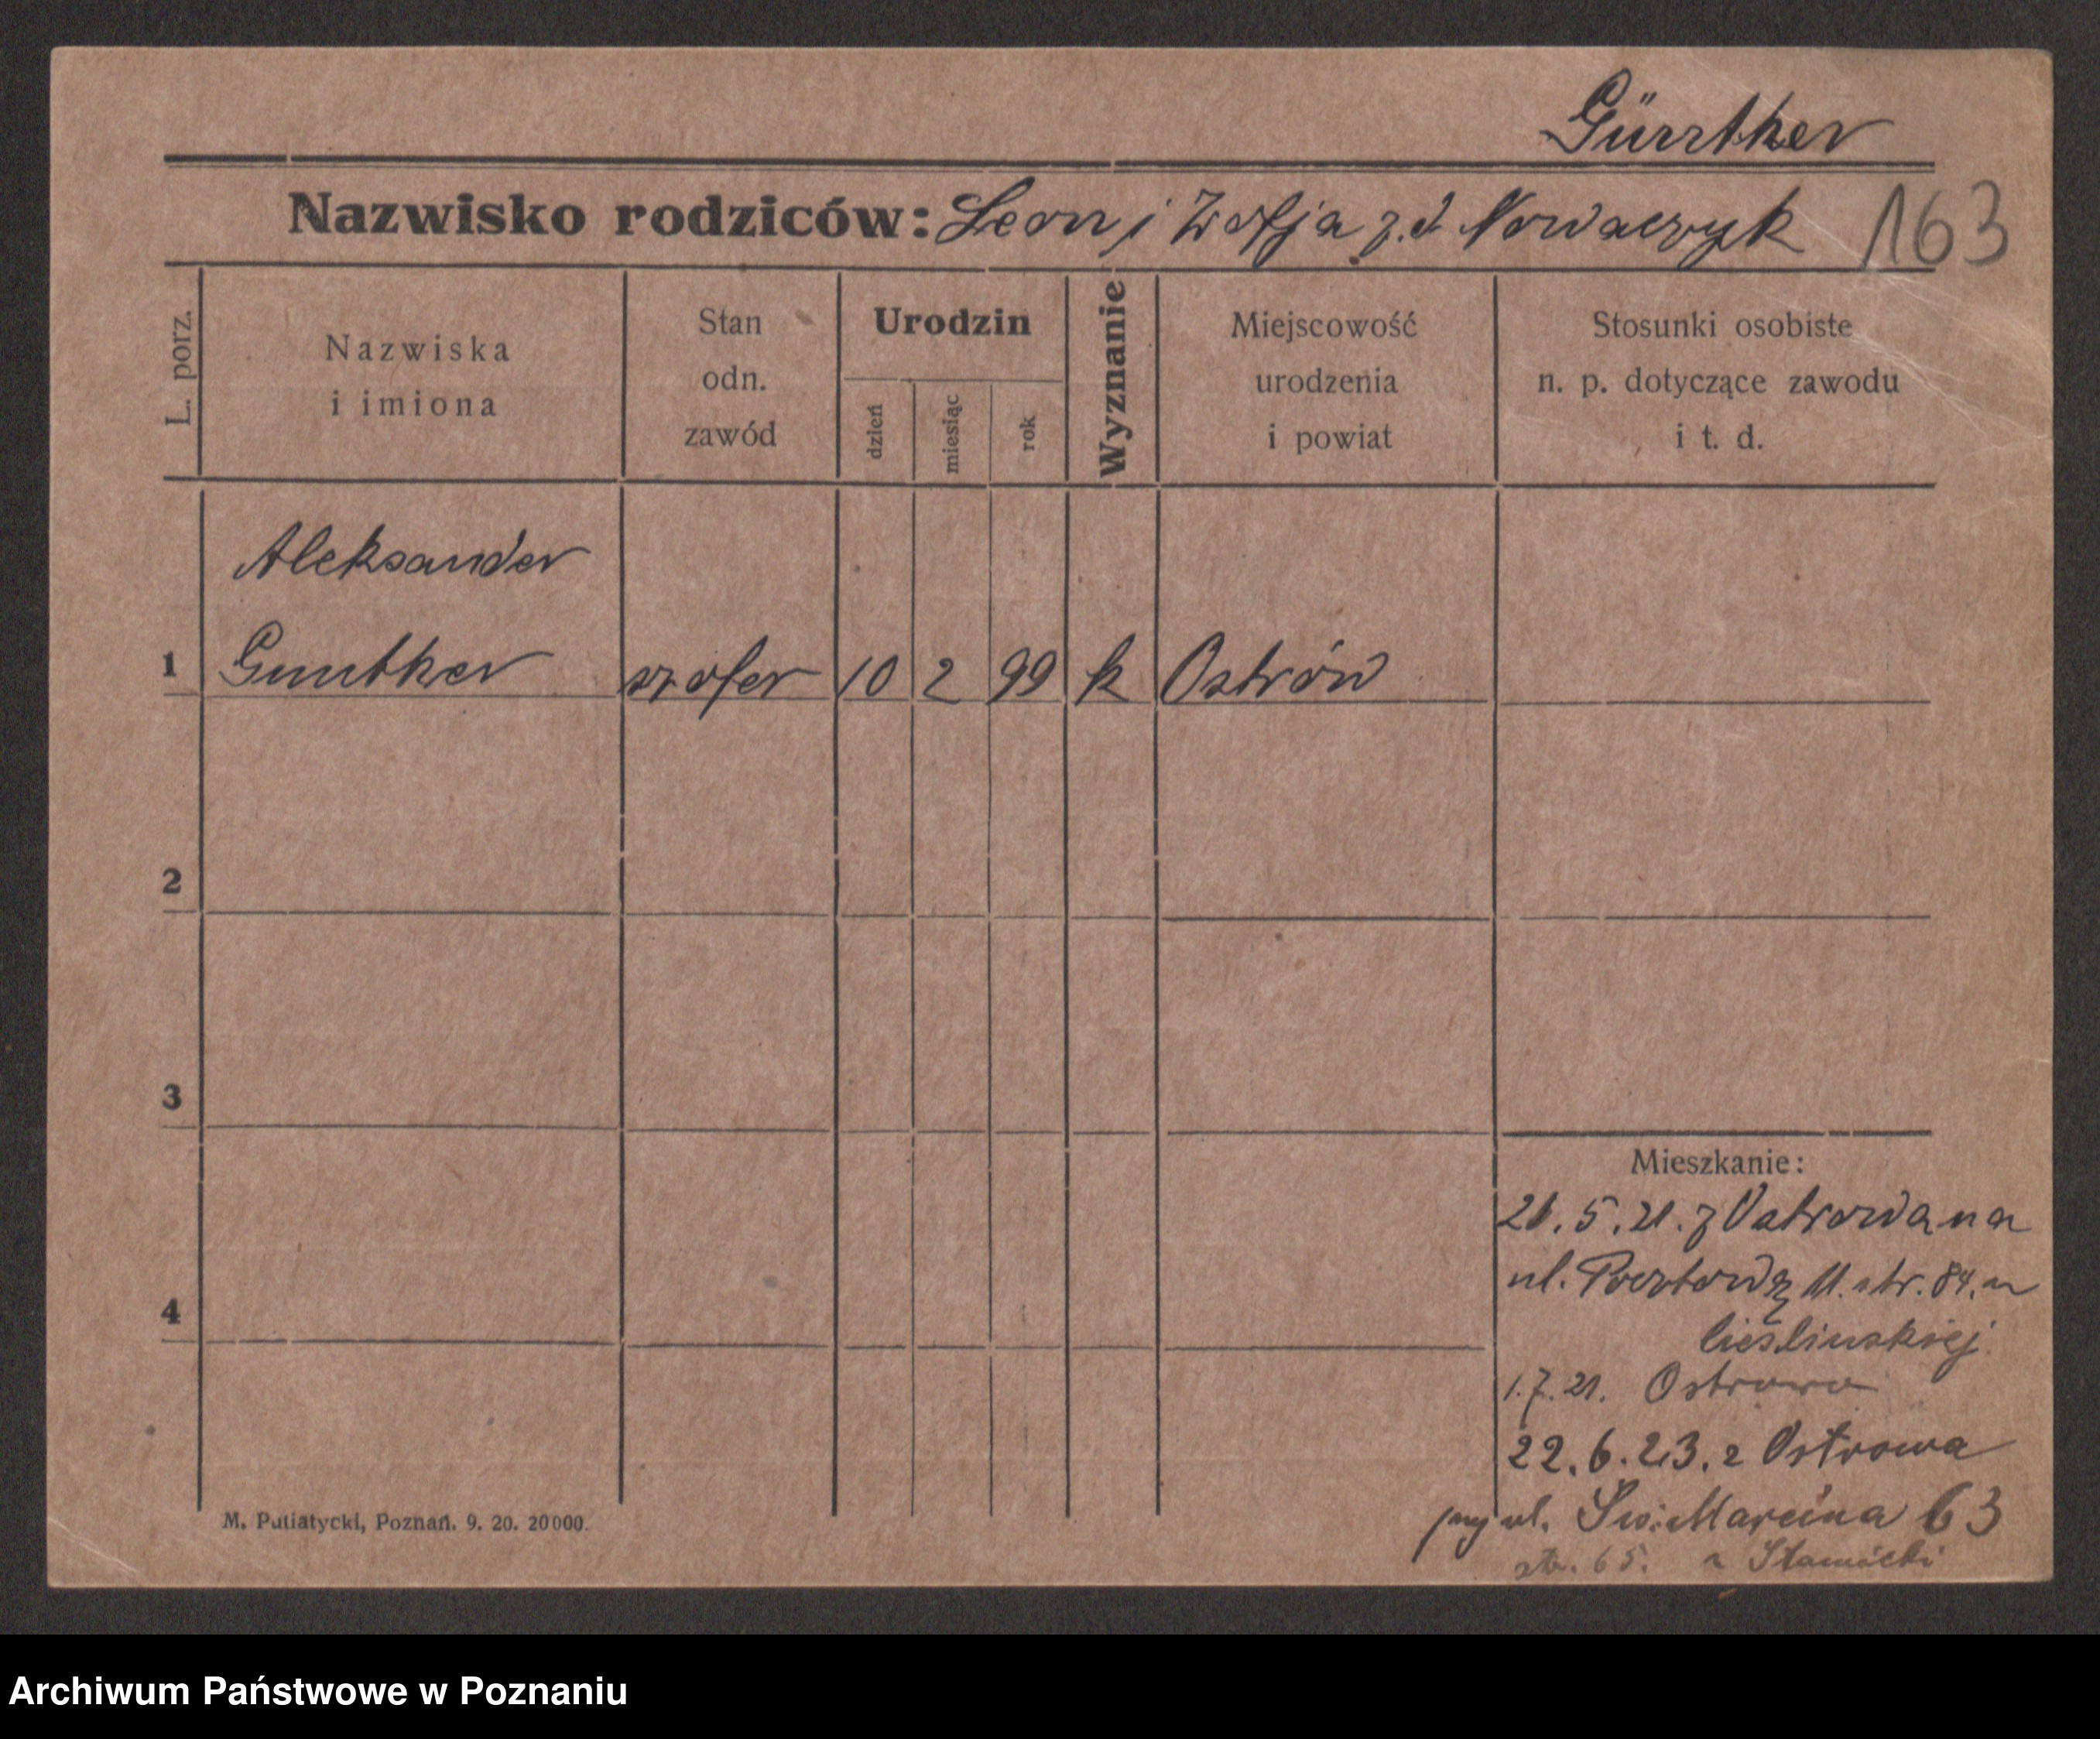 Günther
Nazwisko rodziców: Leon i Zofja z. d. Nowaczyk 163
L. porz.
Nazwiska
i imiona
Stan
odn.
zawód
Urodzin
dzień
miesiąc
rok
Wyznanie
Miejscowość
urodzenia
i powiat
Stosunki osobiste
n. p. dotyczące zawodu
i t. d.
Aleksander
1 Gunther szofer 10 2 99 k Ostrów
2
3
4
Mieszkanie:
21. 5. 21. z Ostrowa na
ul. Pocztową 11. str. 84. u
Cieślinskiej.
1. 7. 21. Ostrowo
22. 6. 23. z Ostrowa
przy ul. Św. Marcina 63
str. 65. u
M. Putiatycki, Poznań. 9. 20. 20000.
Archiwum Państwowe w Poznaniu